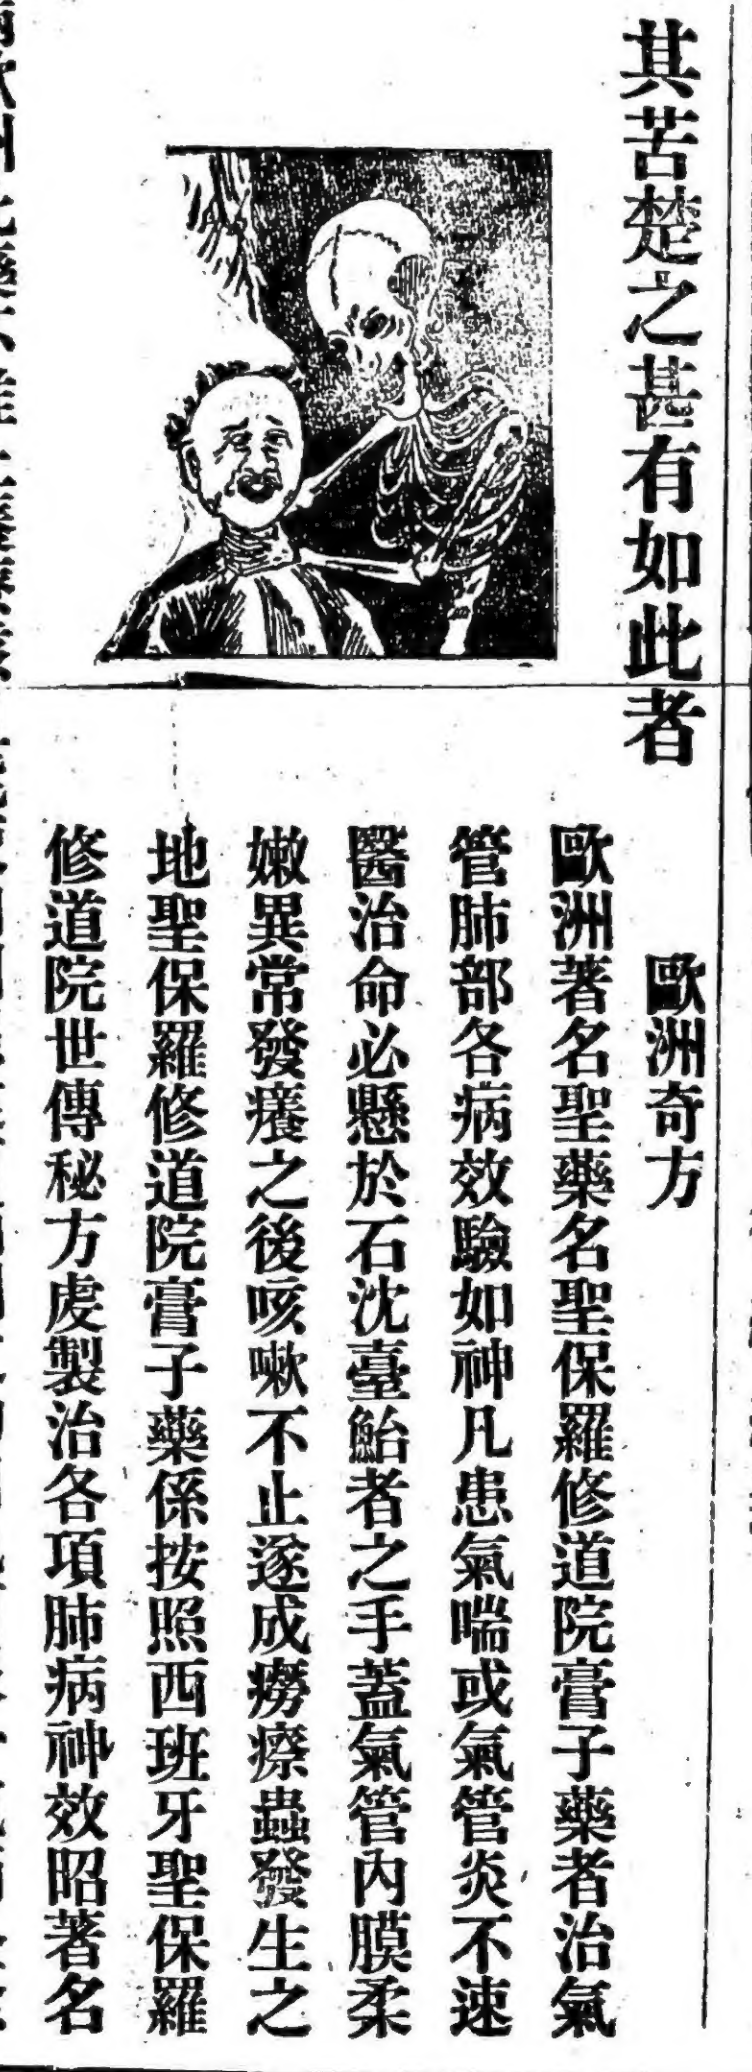 其苦楚之甚有如此者
歐洲奇方
歐洲著名聖藥名聖保羅修道院膏子藥者治氣
管肺部各病效驗如神凡患氣喘或氣管炎不速
醫治命必懸於石沈臺鮐者之手蓋氣管內膜柔
嫩異常發癢之後咳嗽不止遂成癆瘵蟲發生之
地聖保羅修道院膏子藥係按照西班牙聖保羅
修道院世傳秘方虔製治各項肺病神效昭著名